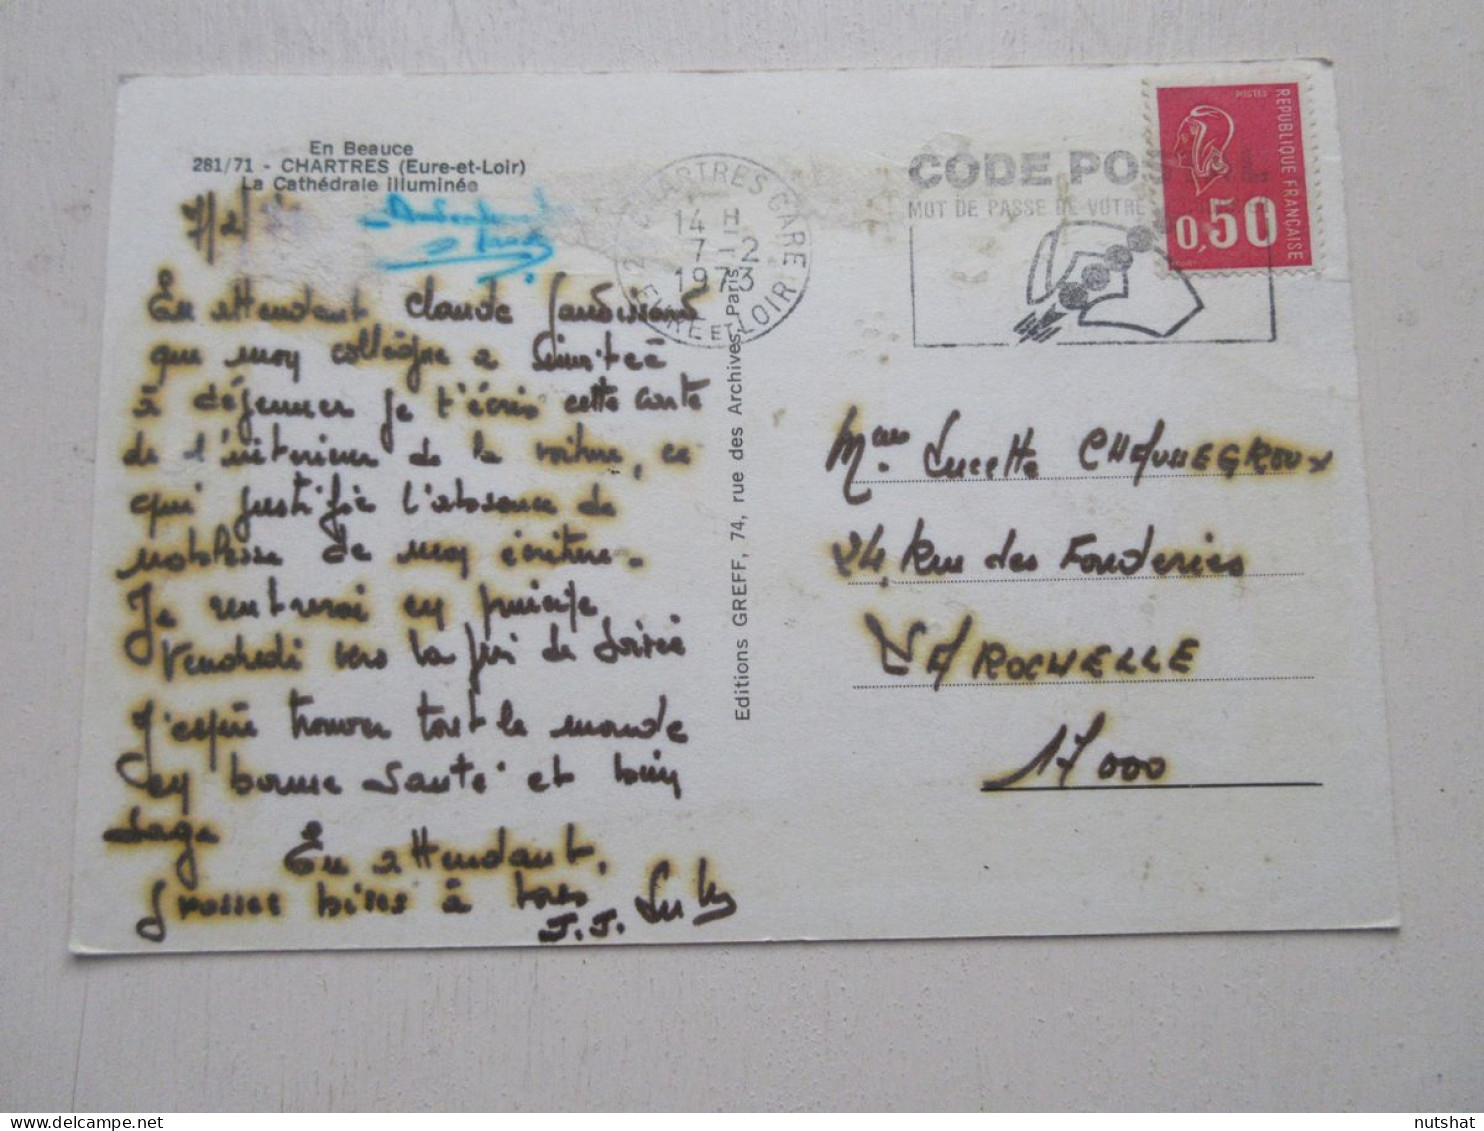 En Beauce
281/71 - CHARTRES (Eure-et-Loir)
La Cathédrale illuminée
7/2/
En attendant Claude
que mon collègue a invité
à déjeuner je t'écris cette carte
de l'intérieur de la voiture, ce
qui justifie l'absence de
noblesse de mon écriture.
Je rentrerai en principe
Vendredi vers la fin de soirée
J'espère trouver tout le monde
en bonne santé et bien
sage
En attendant,
grosses bises à tous
J.J.
Editions GREFF, 74, rue des Archives, Paris
CHARTRES GARE
14 H
7-2
1973
EURE ET LOIR
CODE POSTAL
MOT DE PASSE DE VOTRE
POSTES
REPUBLIQUE FRANÇAISE
0,50
Mme Lucette
24, Rue des Fonderies
LA ROCHELLE
17000
nutshat